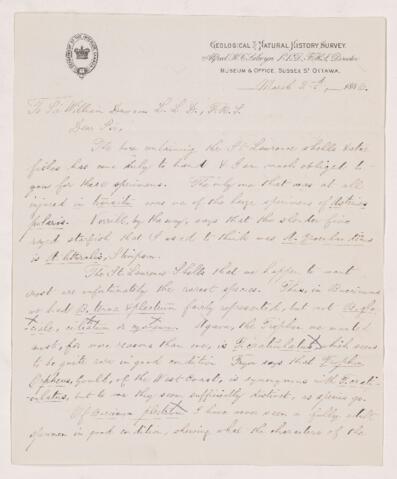 GEOLOGICAL & NATURAL HISTORY SURVEY.
Alfred R. C. Selwyn, LL.D., F.R.S., Director
MUSEUM & OFFICE, SUSSEX ST OTTAWA.
March 188
To Sir William Dawson L.L.D., F.R.S.
Dear Sir,
The box containing the St Lawrence shells & star
fishes has come duly to hand & I am much obliged to
you for these specimens. The only one that was at all
injured in transit was one of the large specimens of Asterias
polaris. Verrill, by the way, says that the slender five
rayed starfish that I used to think was A. Groenlandicus
is A. littoralis, Stimpson.
The St Lawrence Shells that we happen to want
most are unfortunately the rarest species. Thus, in Buccinum
we had B. tenue & plectrum fairly represented, but not
ciliatum or Again, the Trophon we wanted
most, for more reasons than one, is T. craticulatus which seems
to be quite rare in good condition. Tryon says that Trophon
Orpheus, Gould, of the West Coast, is synonymous with T. crati-
culatus, but to me they seem sufficiently distinct, as species go.
Of Buccinum plectrum I have never seen a fully adult
specimen in good condition, shewing what the characters of the